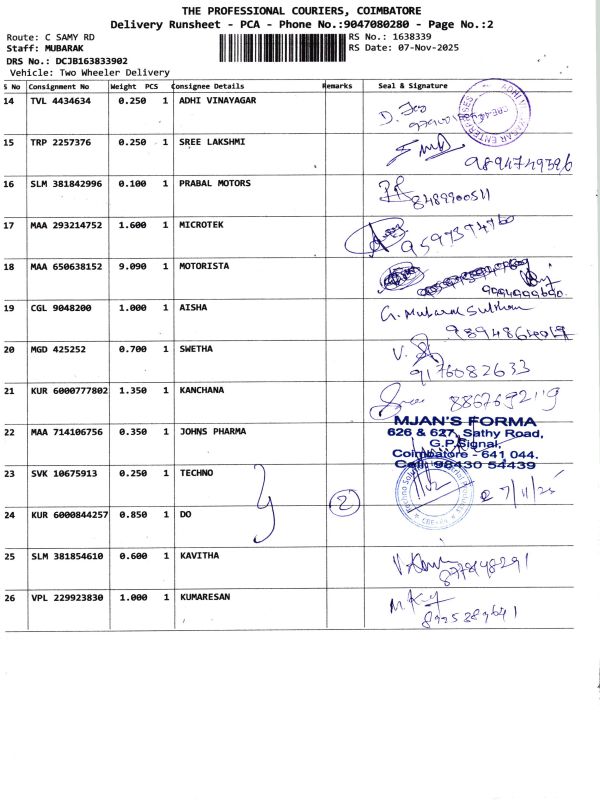 THE PROFESSIONAL COURIERS, COIMBATORE
Delivery Runsheet - PCA - Phone No.:9047080280 - Page No.:2
Route: C SAMY RD
RS No.: 1638339
Staff: MUBARAK
RS Date: 07-Nov-2025
DRS No.: DCJB163833902
Vehicle: Two Wheeler Delivery
S No Consignment No Weight PCS Consignee Details Remarks Seal & Signature
14 TVL 4434634 0.250 1 ADHI VINAYAGAR
15 TRP 2257376 0.250 1 SREE LAKSHMI
9894749396
16 SLM 381842996 0.100 1 PRABAL MOTORS
8489900511
17 MAA 293214752 1.600 1 MICROTEK
9597374760
18 MAA 650638152 9.090 1 MOTORISTA
9994999690
19 CGL 9048200 1.000 1 AISHA
G. Mubarak Sulthan
9894864019
20 MGD 425252 0.700 1 SWETHA
9176082633
21 KUR 6000777802 1.350 1 KANCHANA
8867692119
22 MAA 714106756 0.350 1 JOHNS PHARMA
MJAN'S FORMA
626 & 627, Sathy Road,
G.P.Signal,
Coimbatore - 641 044.
Cell: 98430 54439
23 SVK 10675913 0.250 1 TECHNO
2
7/11/25
24 KUR 6000844257 0.850 1 DO
25 SLM 381854610 0.600 1 KAVITHA
8778148291
26 VPL 229923830 1.000 1 KUMARESAN